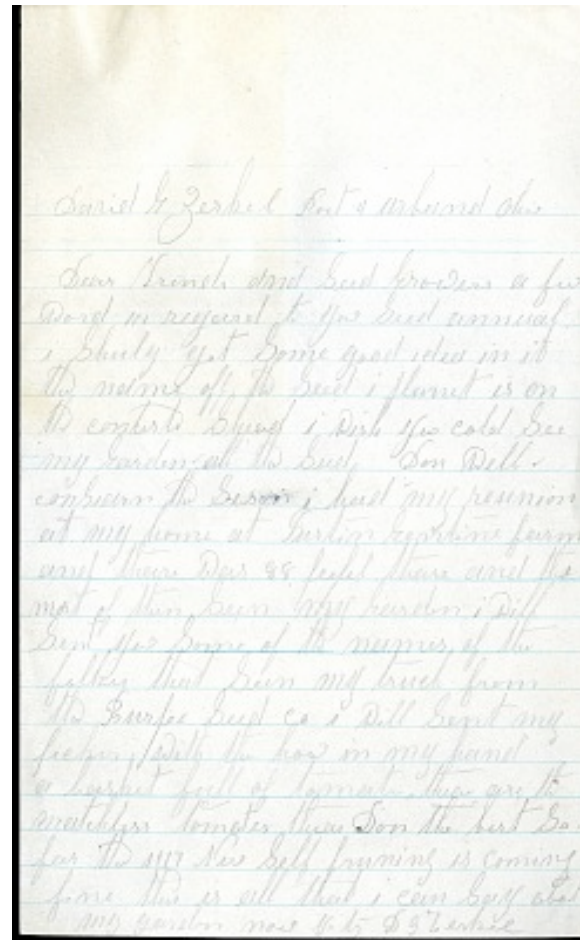 Daniel G Zerkel Rout 4 urband Ohio
Dear Friends and Seed Growers a few
Word in regard to your Seed annual
i Shuly got Some good idea in it
the name off the Seed i planet is on
the contest Sheed i Wish you cold See
my garden all the Seed Don Well
the Season i had my reunion
at my home at farm
and thare Was 88 thare and the
most of them Seen my garden i Will
Sent you Some of the names of the
folkes that Seen my truck from
the Burpee Seed Co i Will Sent my
With the how in my hand
a basket full of tomato thes are the
matchless tomatoes thes Don the best So
far the New Self pruning is coming
fine this is all that i can Say abot
my garden now D G Zerkel